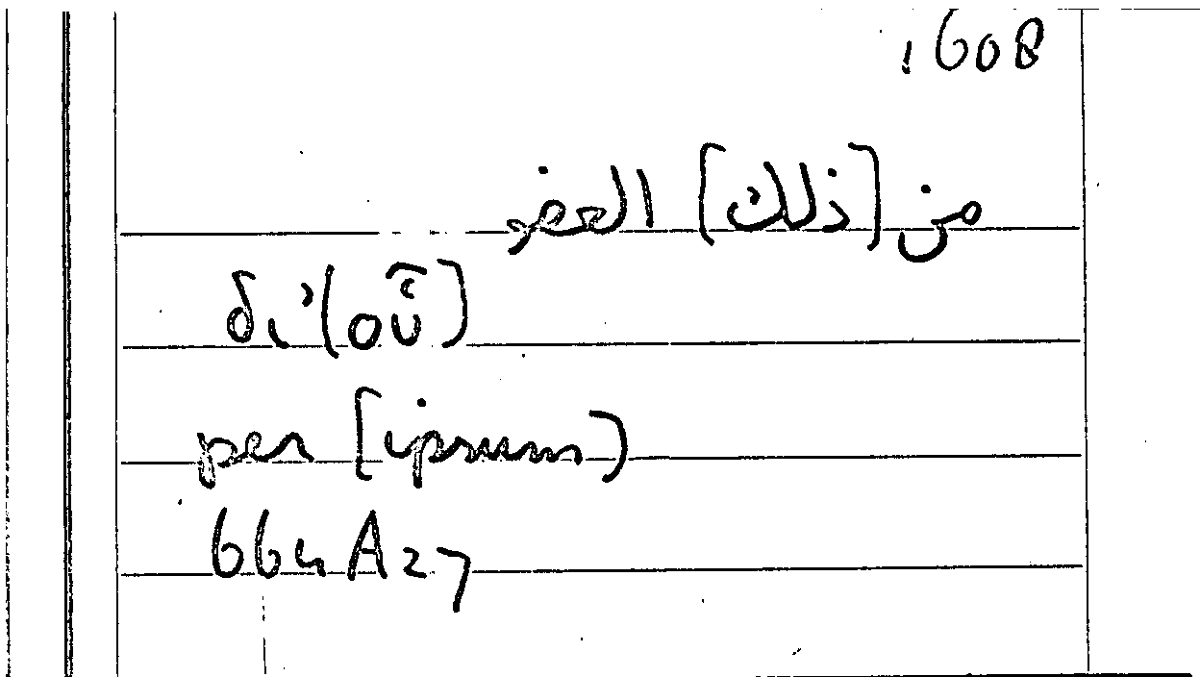 1608
من [ذلك] العضو
δι’(οὗ)
per [ipsum)
664A27